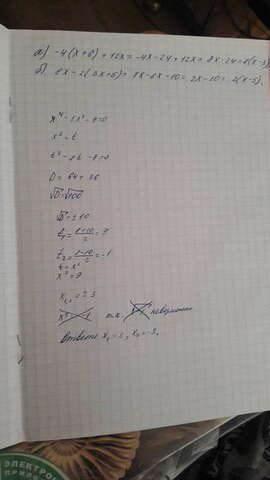 а) -4(x+6)+12x=-4x-24+12x=8x-24=8(x-3)
б) 8x-2(3x+5)= 8x-6x-10=2x-10= 2(x-5).
x⁴-8x²-9=0
x²=t
t²-8t-9=0
D=64+36
√D=√100
√D=±10
t₁=8+10/2=9
t₂=8-10/2=-1
t=x²
x²=9
x₁,₂=±3
т.к. невозможно
Ответ: x₁=3, x₂=-3.
ЭЛЕКТРО
ПРИЛО